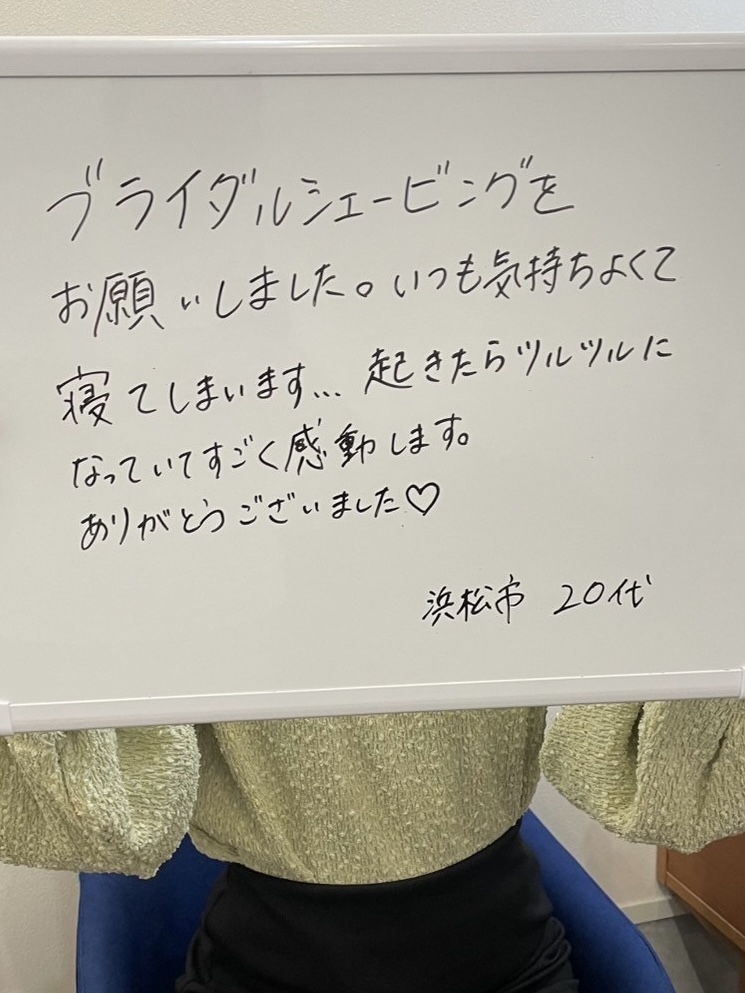 ブライダルシェービングを
お願いしました。いつも気持ちよくて
寝てしまいます... 起きたらツルツルに
なっていてすごく感動します。
ありがとうございました♡
浜松市 20代